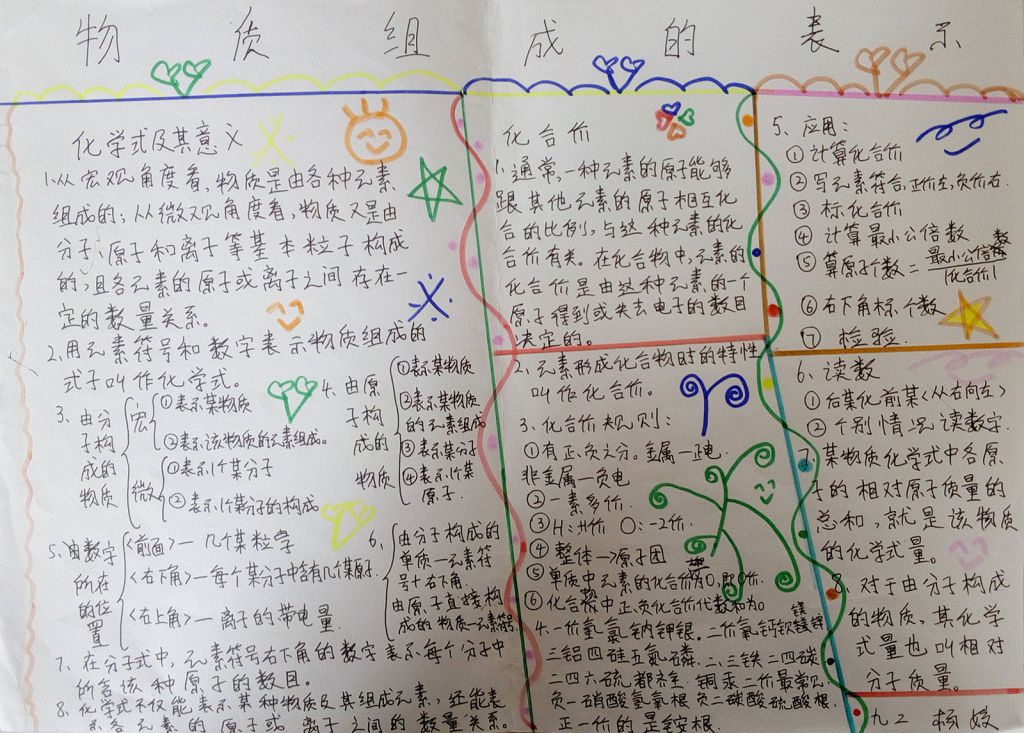 物质组成的表示
化学式及其意义
1.从宏观角度看,物质是由各种元素
组成的;从微观角度看,物质又是由
分子、原子和离子等基本粒子构成
的,且各元素的原子或离子之间存在一
定的数量关系。
2.用元素符号和数字表示物质组成的
式子叫作化学式。
3、由分子构成的物质
宏
①表示某物质
②表示该物质的元素组成。
微
①表示1个某分子
②表示1个某分子的构成
4、由原子构成的物质
①表示某物质
②表示某物质的元素组成
③表示某分子
④表示1个某原子.
5、由数字所在的位置
<前面>—几个某粒学
<右下角>—每个某分子中含有几个某原子.
<右上角>—离子的带电量.
6、
由分子构成的
单质—元素符
号+右下角.
由原子直接构
成的物质—元素符号
7、在分子式中,元素符号右下角的数字表示每个分子中
所含该种原子的数目。
8、化学式不仅能表示某种物质及其组成元素,还能表
示各元素的原子或离子之间的数量关系。
化合价
1.通常,一种元素的原子能够
跟其他元素的原子相互化
合的比例,与这种元素的化
合价有关。在化合物中,元素的
化合价是由这种元素的一个
原子得到或失去电子的数目
决定的。
2、元素形成化合物时的特性
叫作化合价。
3、化合价规则:
①有正、负之分。金属—正电.
非金属—负电
②一素多价.
③H:+1价 O:-2价.
④整体→原子团
⑤单质中元素的化合价为0,即0价.
⑥化合物中正负化合价代数和为0
4、一价氢氯钠钾银,二价氧钙钡镁锌
三铝四硅五氮磷.二、三铁二四碳
二四六硫都齐全.铜汞二价最常见
负一硝酸氢氧根 负二碳酸硫酸根.
正一价的是铵根.
5、应用:
①计算化合价
②写元素符合,正价左,负价右.
③标化合价
④计算最小公倍数
⑤算原子个数=最小公倍数/化合价
⑥右下角标个数
⑦检验.
6、读数
①后某化前某<从右向左>
②个别情况读数字.
7、某物质化学式中各原
子的相对原子质量的
总和,就是该物质
的化学式量。
8、对于由分子构成
的物质,其化学
式量也叫相对
分子质量。
九2